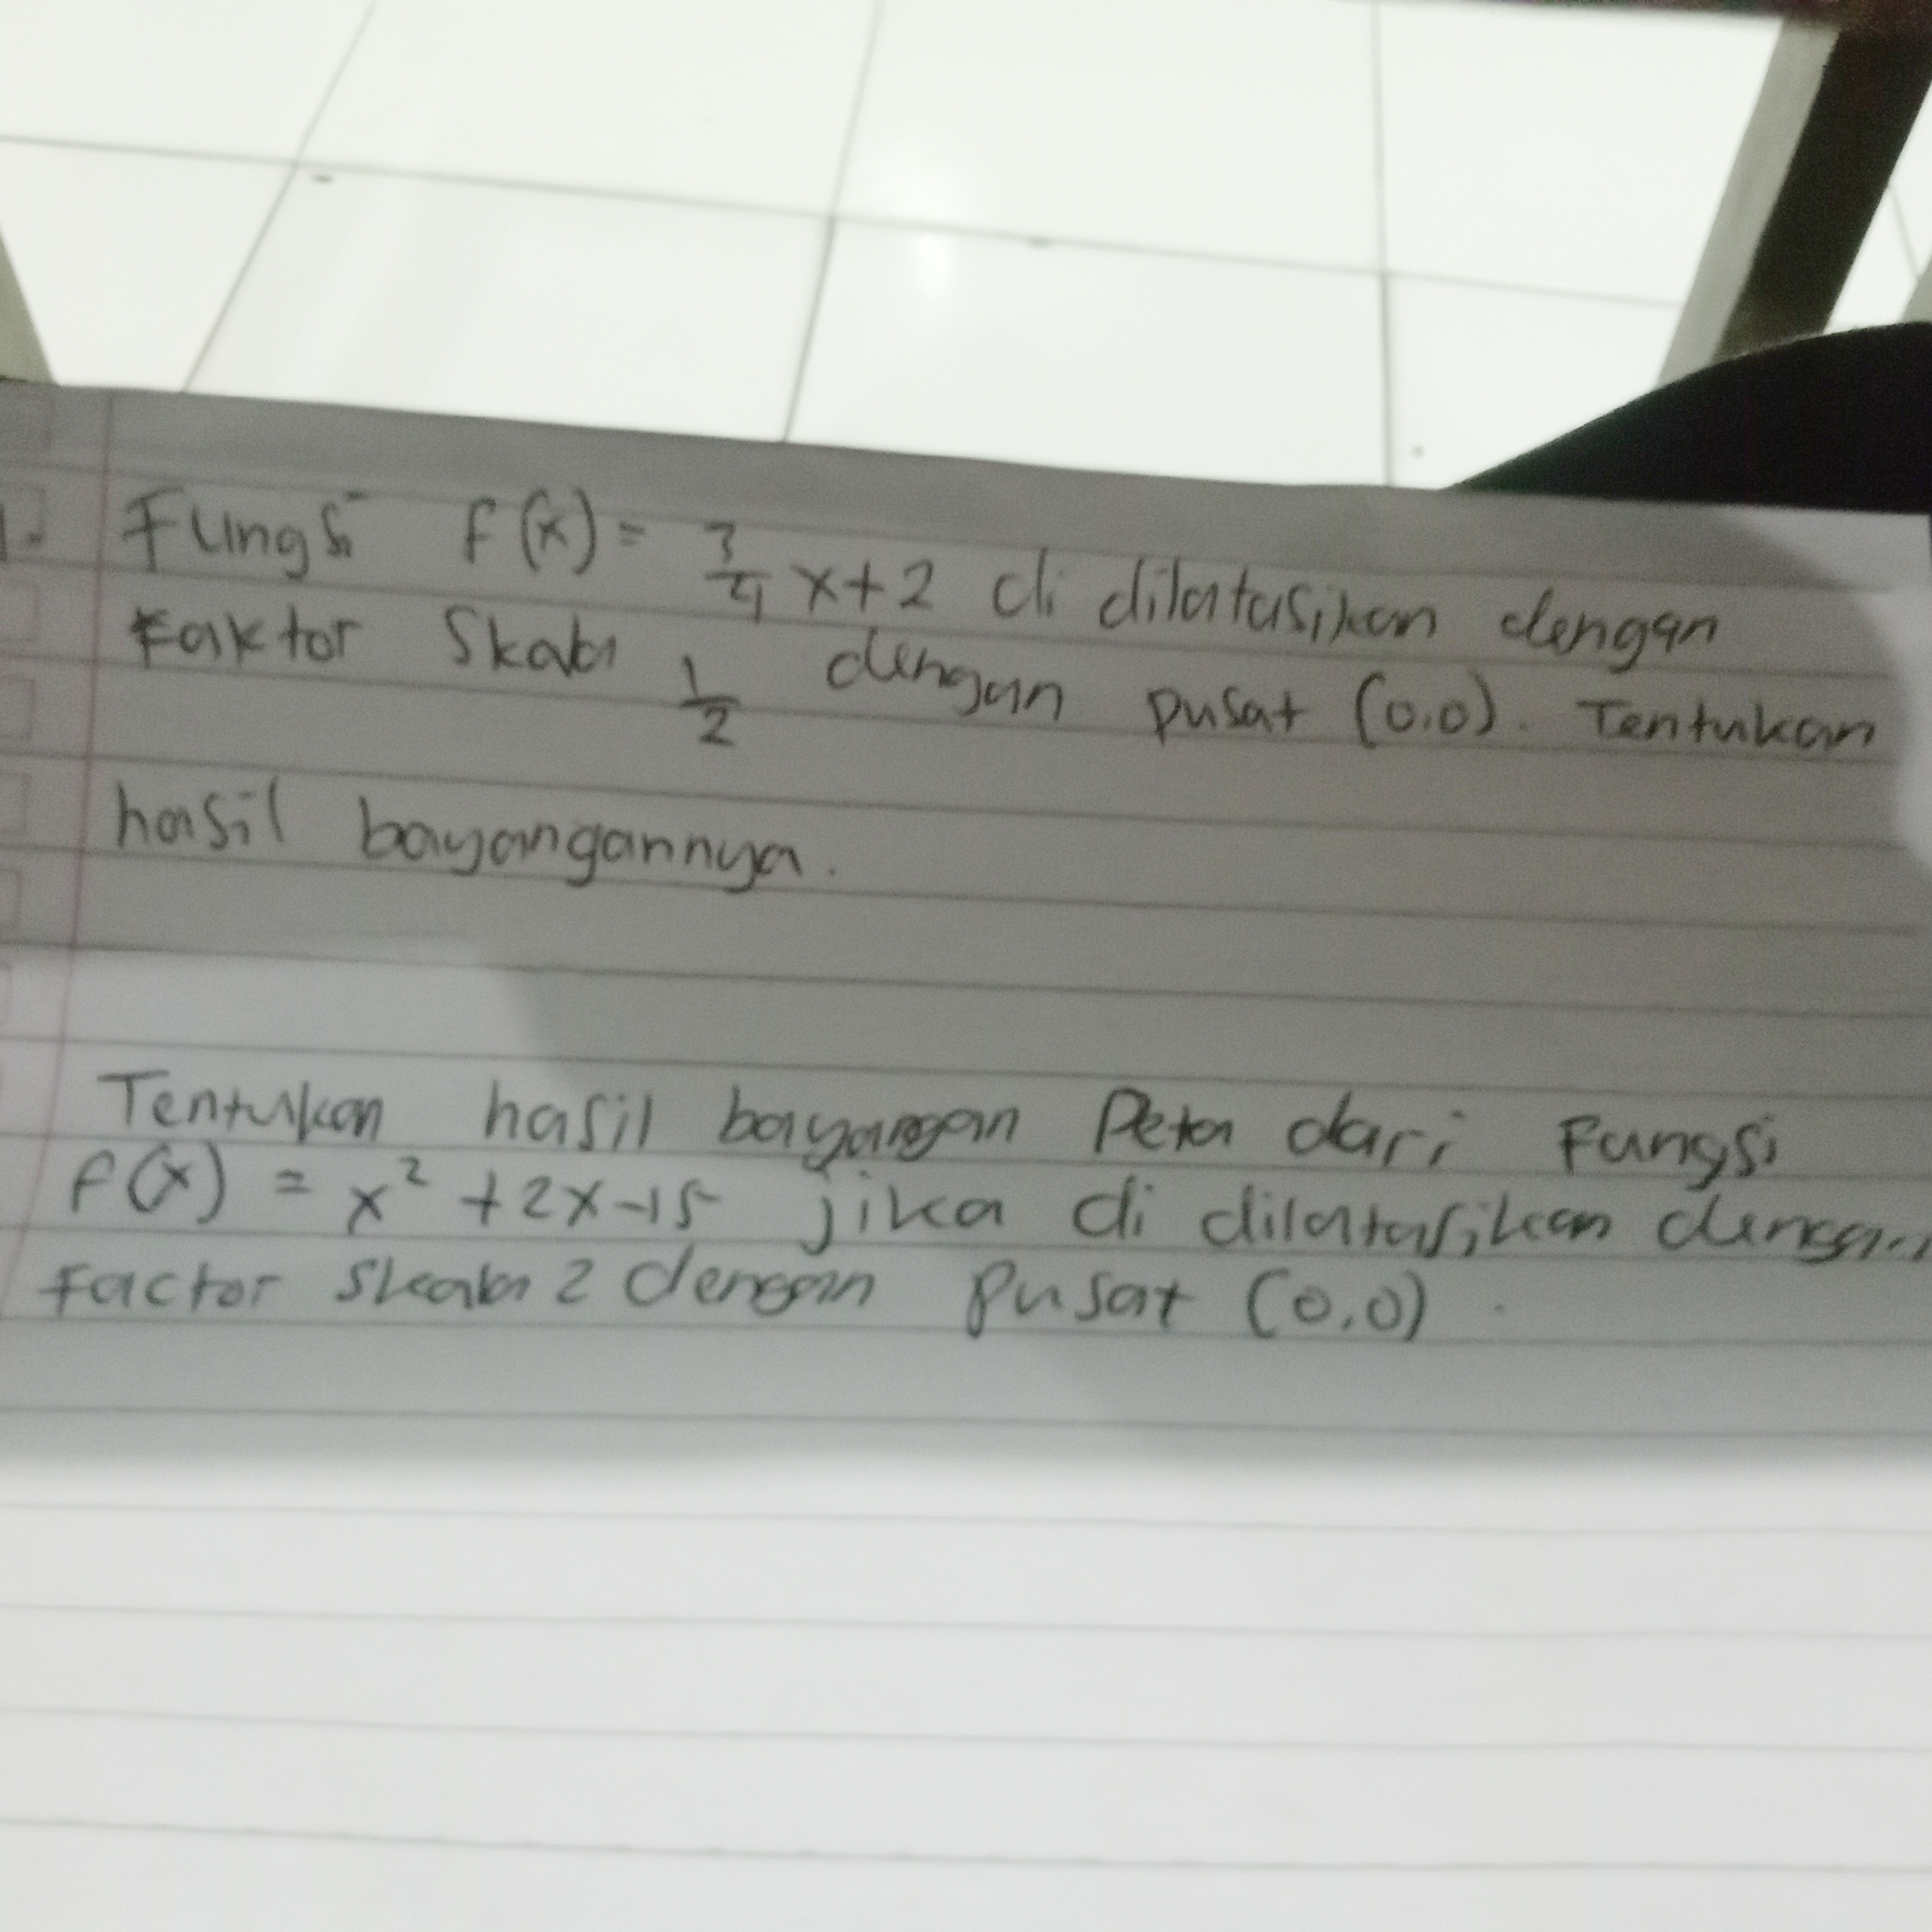 1. Fungsi f(x) = 3/4 x+2 di dilatasikan dengan
Faktor Skala 1/2 dengan pusat (0,0). Tentukan
hasil bayangannya.
Tentukan hasil bayangan Peta dari Fungsi
f(x) = x² +2x-15 jika di dilatasikan dengan
factor skala 2 dengan pusat (0,0).